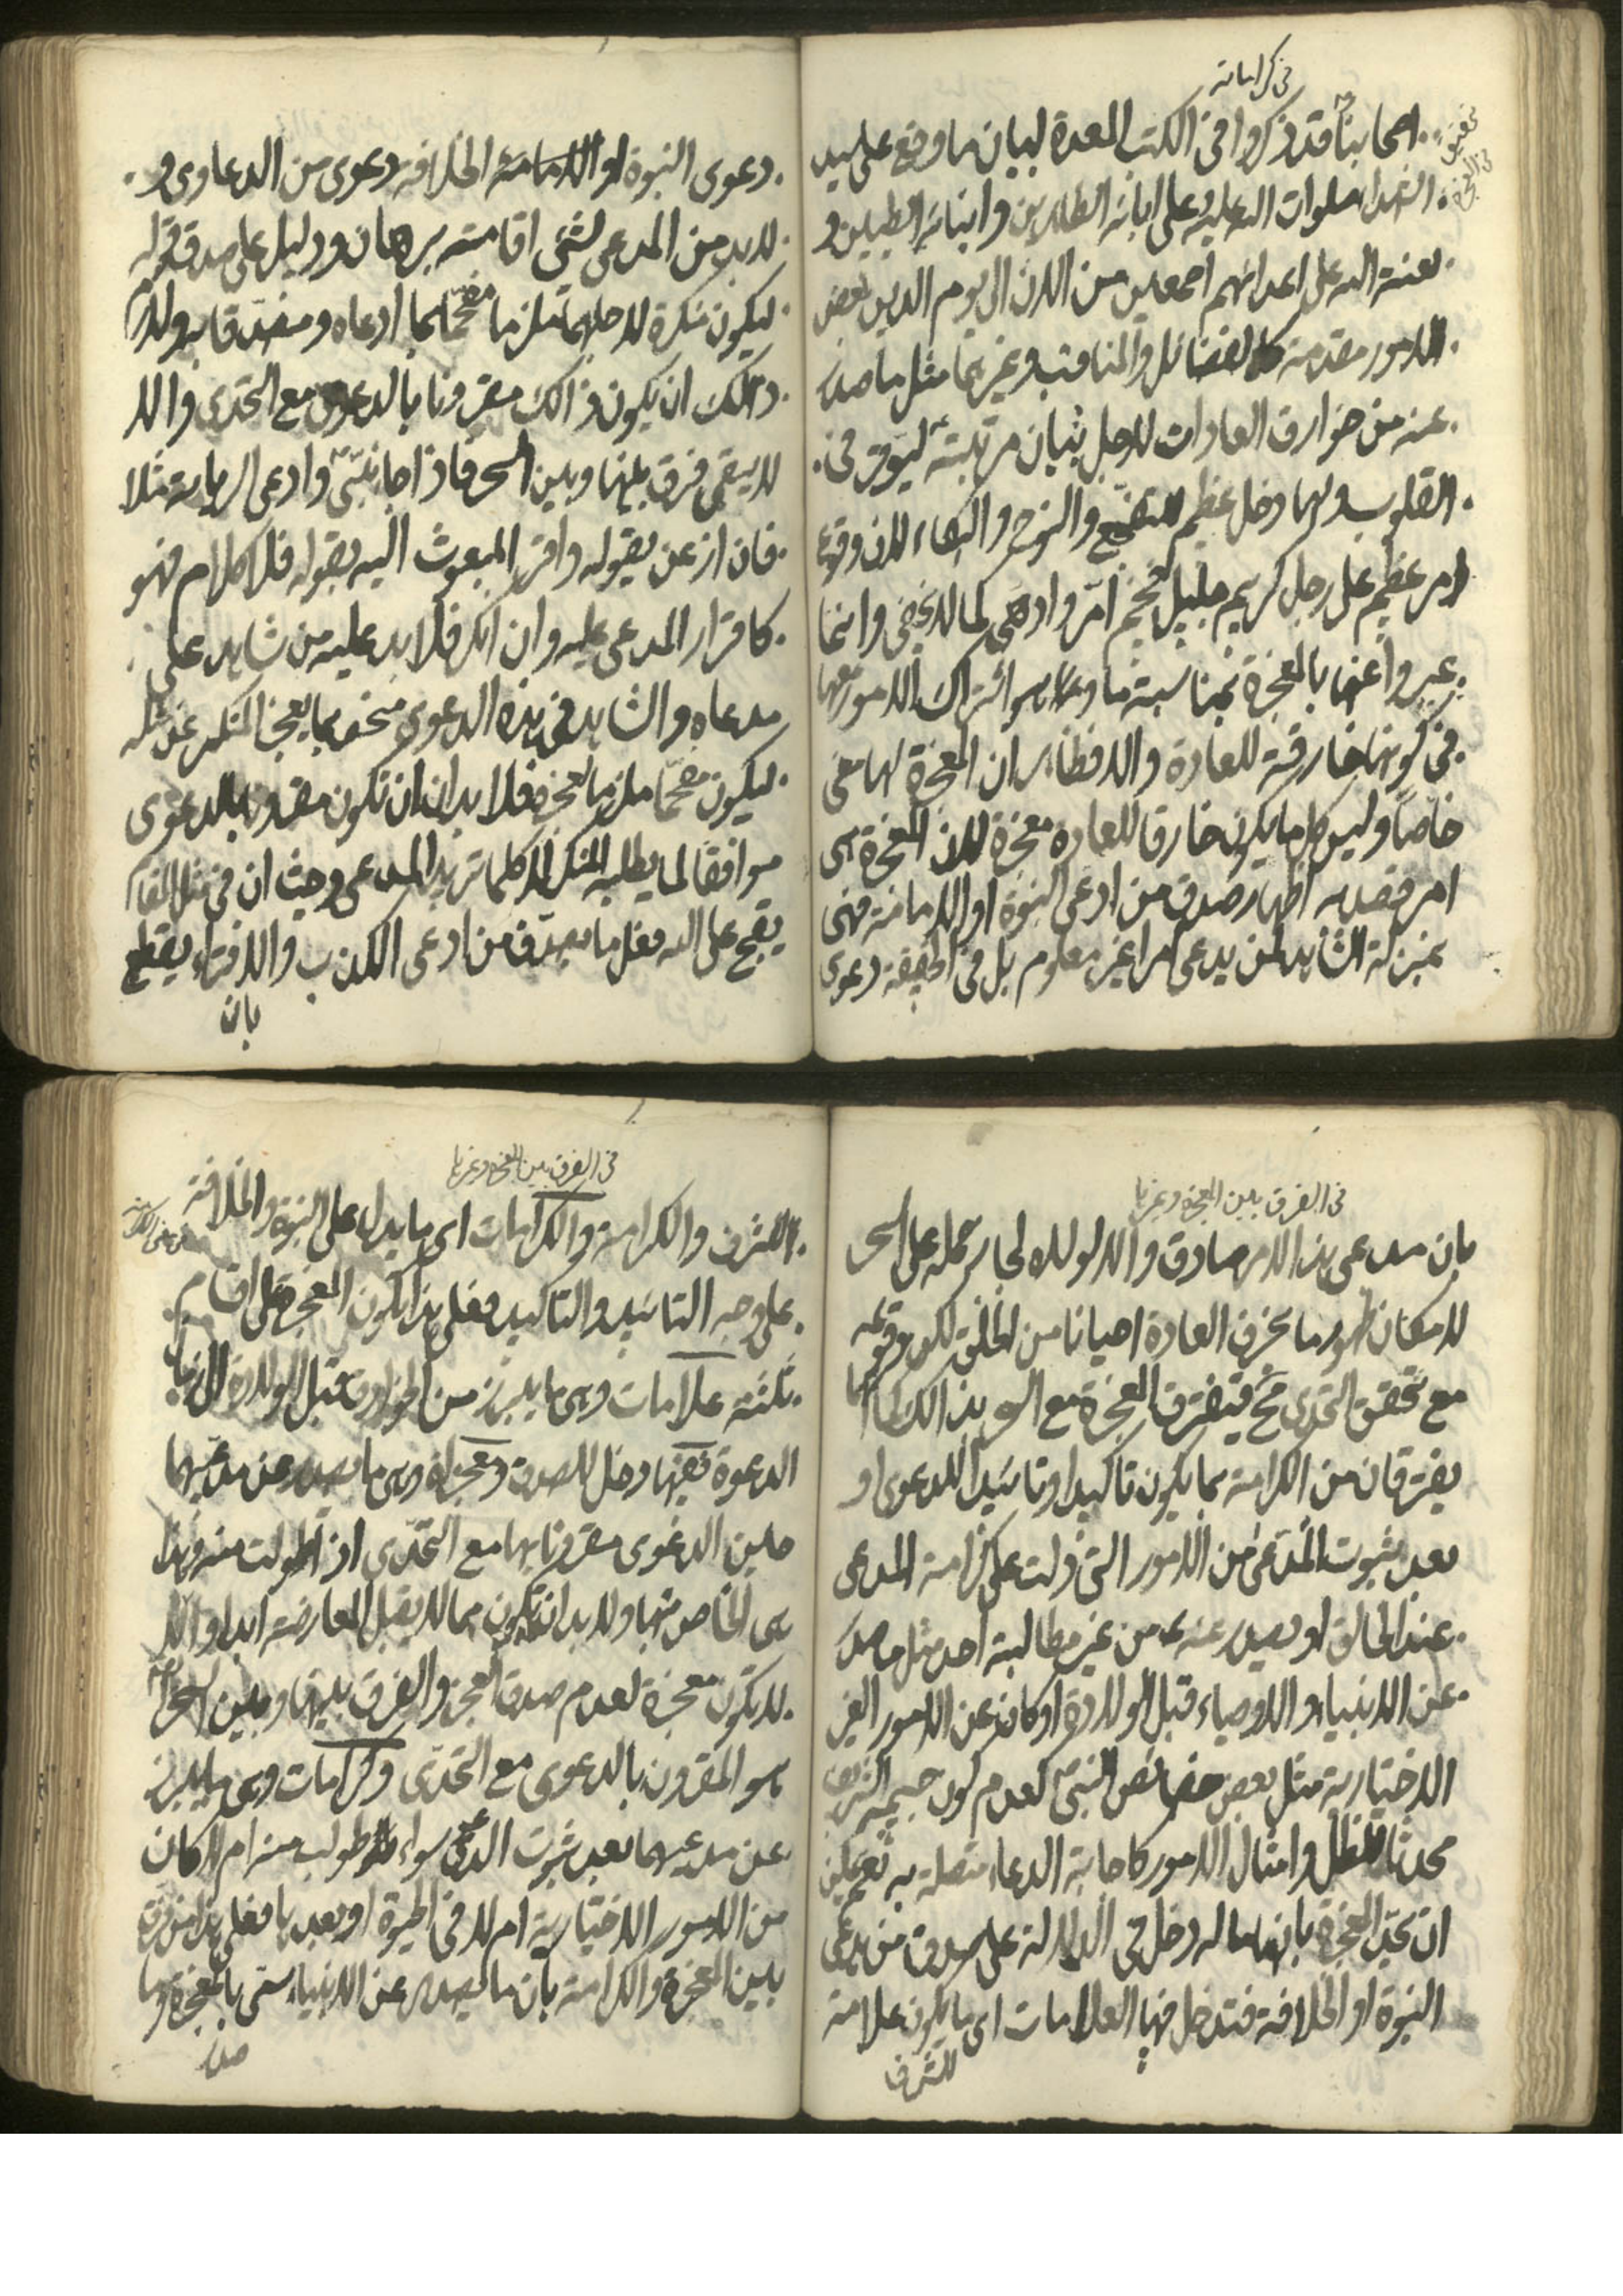 في كراماته
اصحابنا قد ذكروا في الكتب المعدة لبيان ما وقع على سيد
تحقيق في المعجزة
الشهدا صلوات الله عليه وعلى ابائه الطاهرين وابنائه الطيبين و
لعنة الله على اعدائهم اجمعين من الان الى يوم الدين بعض
الامور مقدمة كالفضائل والمناقب وغيرهما مثل ما صدر
عنه من خوارق العادات لاجل بيان مرتبته ليوقر في
القلوب ولها دخل عظيم للتفجع والنوح والبكاء لان وقوع
امر عظيم على رجل كريم جليل فخيم امر وادهى كما لا يخفى وانما
عبروا عنها بالمعجزة بمناسبة ما وهو اشتراك الامور معها
في كونها خارقة للعادة والا فظاهر ان المعجزة لها معنى
خاصا وليس كل ما يكون خارقا للعادة معجزة لان المعجزة هى
امر قصد به اظهار صدق من ادعى النبوة او الامامة فهى
بمنزلة الشاهد لمن يدعى امرا غير معلوم بل في الحقيقة دعوى
دعوى النبوة او الامامة الخلافة دعوى من الدعاوى و
لا بد من المدعى لشئ اقامته برهان ودليل على صدق قوله
ليكون منكره لاجلهما ملزما مفحما بما ادعاه ومصدقا به ولا
ذلك ان يكون ذالك مقرونا بالدعوى مع التحدى والا
لا يبقى فرق بينها وبين السحر فاذا جاء نبى وادعى الرسالة مثلا
فان اذعن بقوله واقر المبعوث اليه بقوله فلا كلام فهو
كاقرار المدعى عليه وان انكر فلا بد عليه من شاهد على
مدعاه والشاهد في هذه الدعوى منحصر بما يعجز المنكر عن مثله
ليكون مفحما ملزما بعجزه فلا بد ان تكون مقرونة بالدعوى
موافقا لما يطلبه المنكر لا كلما تريد المدعى وحيث ان في مثل المقام
يقبح على الله فعل ما يصدق من ادعى الكذب والافتراء يقطع
بان
في الفرق بين المعجزة وغيرها
بان مدعى هذا الامر صادق والا لولاه لجاز حمله على السحر
لامكان ظهور ما يخرق العادة احيانا من الخلق لكن وقوعه
مع تحقق التحدى قبح فيفترق المعجزة مع السحر بذالك كما انهما
يفترقان من الكرامة بما يكون تاكيدا وتائيدا للدعوى او
بعد ثبوت المدعى من الامور التى دلت على كرامة المدعى
عند الخالق او يصدر عنه من غير مطالبة احد مثل ما صدر
عن الانبياء والاوصياء قبل الولادة او كانت عن الامور الغير
الاختيارية مثل بعض خصائص النبى كعدم كون جسمه الشريف
محدثا للظل وامثال الامور كاجابة الدعاء متصلة به نعم يمكن
ان تحد المعجزة بانها ما له دخل في الدلالة على صدق من يدعى
النبوة او الخلافة فتدخل فيها العلامات اى ما يكون علامة
للشرف
في الفرق بين المعجزة وغيرها
للشرف والكرامة والكرامات اى ما يدل على النبوة والخلافة
على وجه التائيد والتاكيد فعلى هذا يكون المعجزة على اقسام
ثلثة علامات وهى ما يبرز من الخوارق قبل الولادة الى زمان
الدعوة فيها دخل للصدق ومعجزة وهى ما يصدر عن مدعيها
حين الدعوى مقرونا بها مع التحدى اذا طولبت منه وهذا
هى الخاص منها ولا بد ان تكون مما لا يقبل المعارضة ابدا والا
لا يكون معجزة لعدم صدق العجز والفرق بينها وبين السحر
هو المقرون بالدعوى مع التحدى وكرامات وهى ما يبرز
عن مدعيها بعد ثبوت الدعوى سواء طولب منه ام لا كان
من الامور الاختيارية ام لا في الحيوة او بعدها فعلى هذا من فرق
بين المعجزة والكرامة بان ما يصدر عن الانبياء سمى بالمعجزة وما
صدر